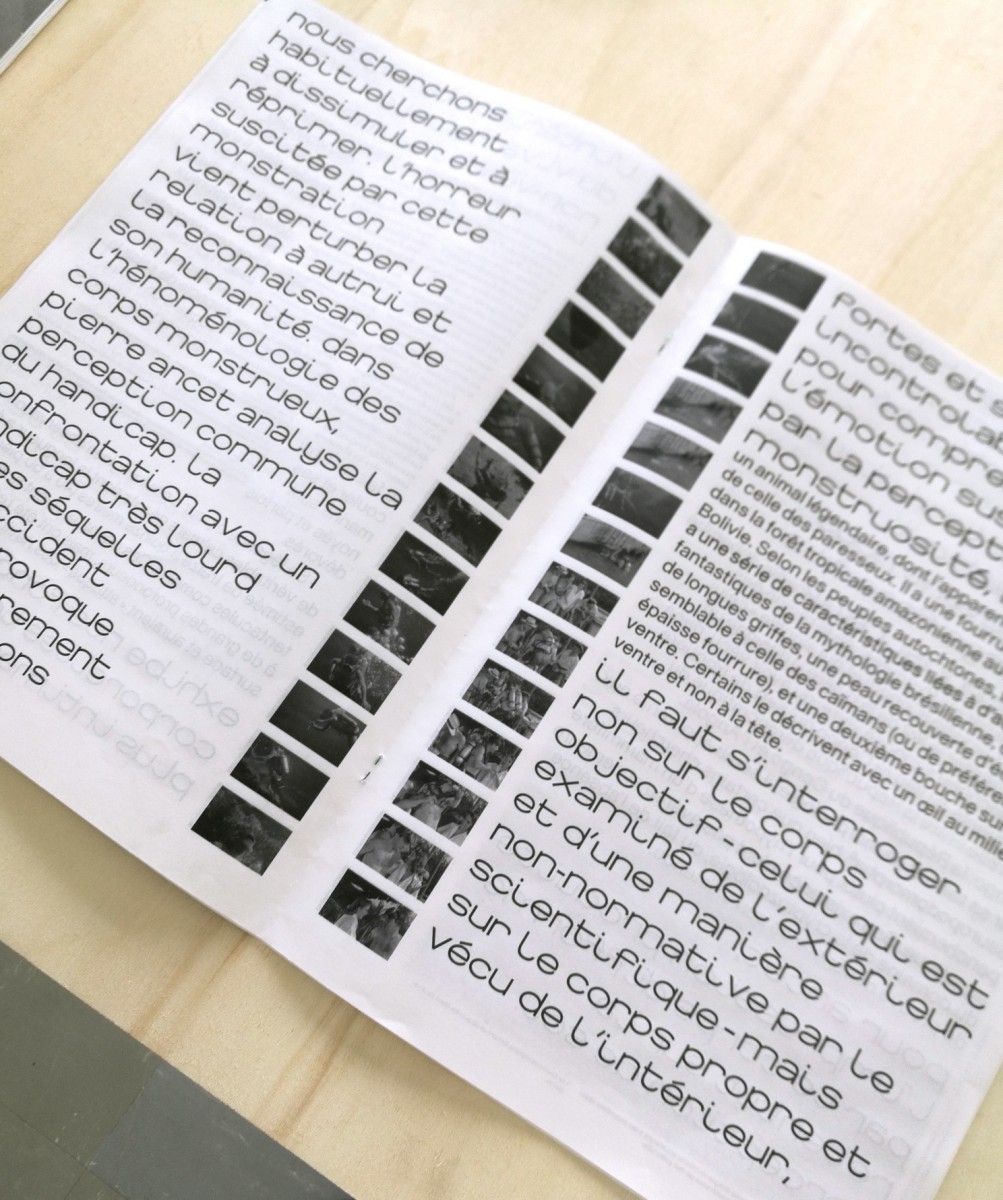 nous cherchons
habituellement
à dissimuler et à
réprimer. l'horreur
suscitée par cette
monstration
vient perturber la
relation à autrui et
la reconnaissance de
son humanité. dans
l'hénoménologie des
corps monstrueux,
pierre ancet analyse la
perception commune
du handicap. la
onfrontation avec un
ndicap très lourd
es séquelles
ccident
rovoque
rement
ons
Portes et
incontrola
pour compre
l'émotion su
par la percept
monstruosité,
un animal légendaire, dont l'appare
de celle des paresseux. Il a une fourru
dans la forêt tropicale amazonienne au
Bolivie. Selon les peuples autochtones,
a une série de caractéristiques liées à d'a
fantastiques de la mythologie brésilienne,
de longues griffes, une peau recouverte d'é
semblable à celle des caïmans (ou de préfére
épaisse fourrure), et une deuxième bouche su
ventre. Certains le décrivent avec un œil au mili
ventre et non à la tête.
il faut s'interroger
non sur le corps
objectif - celui qui est
examiné de l'extérieur
et d'une manière
non-normative par le
scientifique - mais
sur le corps propre et
vécu de l'intérieur,